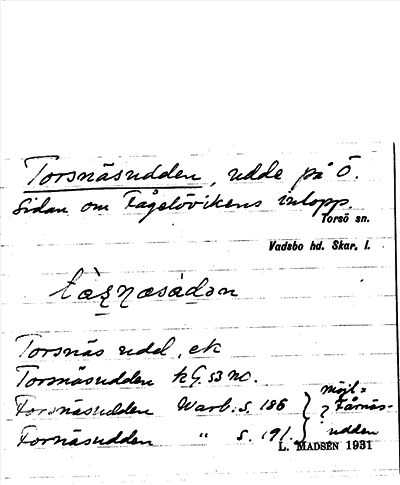 Torsnäsudden, udde på Ö.
Sidan om Fågelövikens inlopp.
Torsö sn.
Vadsbo hd. Skar. l.
Torsnäs udd, ek
Torsnäsudden
Forsnäsudden Warb. s. 186
Fornäsudden " s. 191.
möjl=
? Fårnäs-
udden
L. MADSÉN 1931